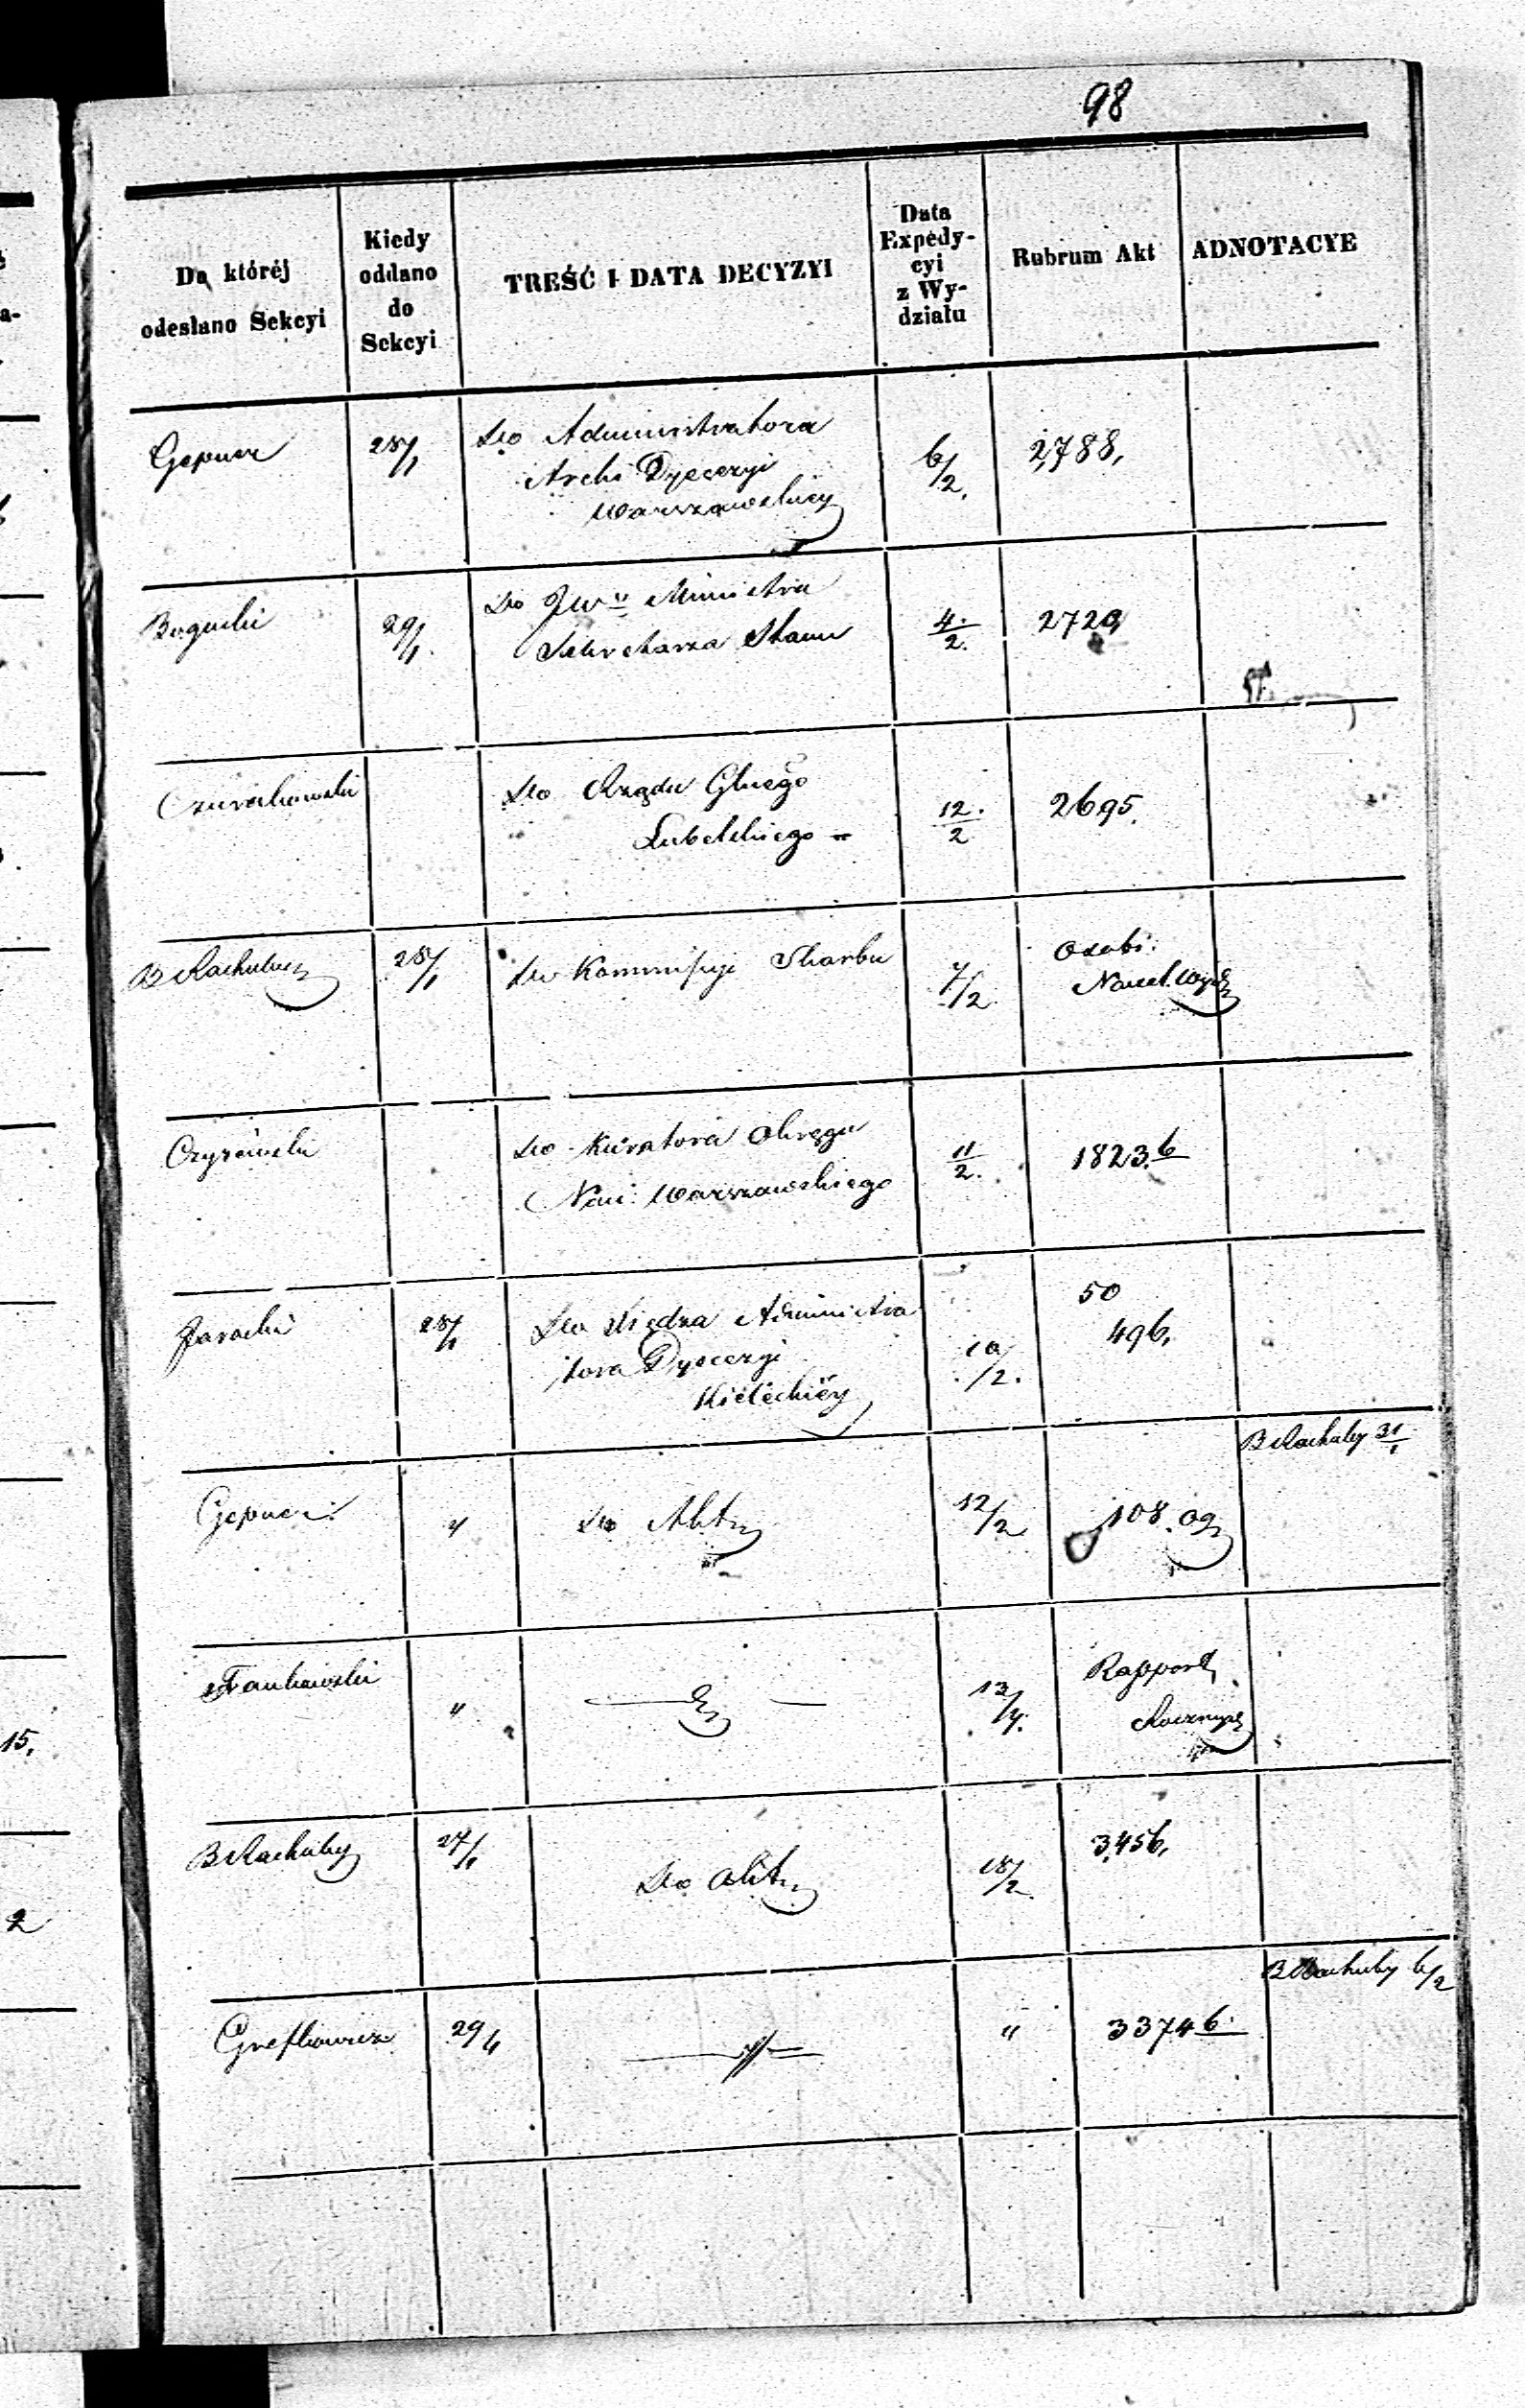 98
Do któréj
odesłano Sekcyi
Kiedy
oddano
do
Sekcyi
TREŚĆ I DATA DECYZYI
Data
Expedy-
cyi
z Wy-
działu
Rubrum Akt
ADNOTACYE
Gepner 28/1 Do Administratora
Archi Dyecezyi
Warszawskiey
6/2. 2,788,
Bogucki 29/1. Do JWo Ministra
Sekretarza Stanu
4./2. 2729
Do Rządu Głnego
Lubelskiego
12./2 2695.
B Rachuby 28/1 Do Kommissyi Skarbu
7/2 Osobi:
Naczel. Wyd
Czyżewski Do Kuratora Okręgu
Nau: Warszawskiego
11/2. 1823.6
Jarocki 28/1 Do Xiędza Administra
tora Dyecezyi
Kieleckiéy
10/2. 50
496,
B Rachuby 31/1
Gepner: " Do Akt
12/2 108. Og
Frankowski "
13/4. Rapport
Roczny
B Rachuby 27/1
Do Akt
18/2 3,456,
B Rachuby 6/2
29/1
" 33746.
15,
2